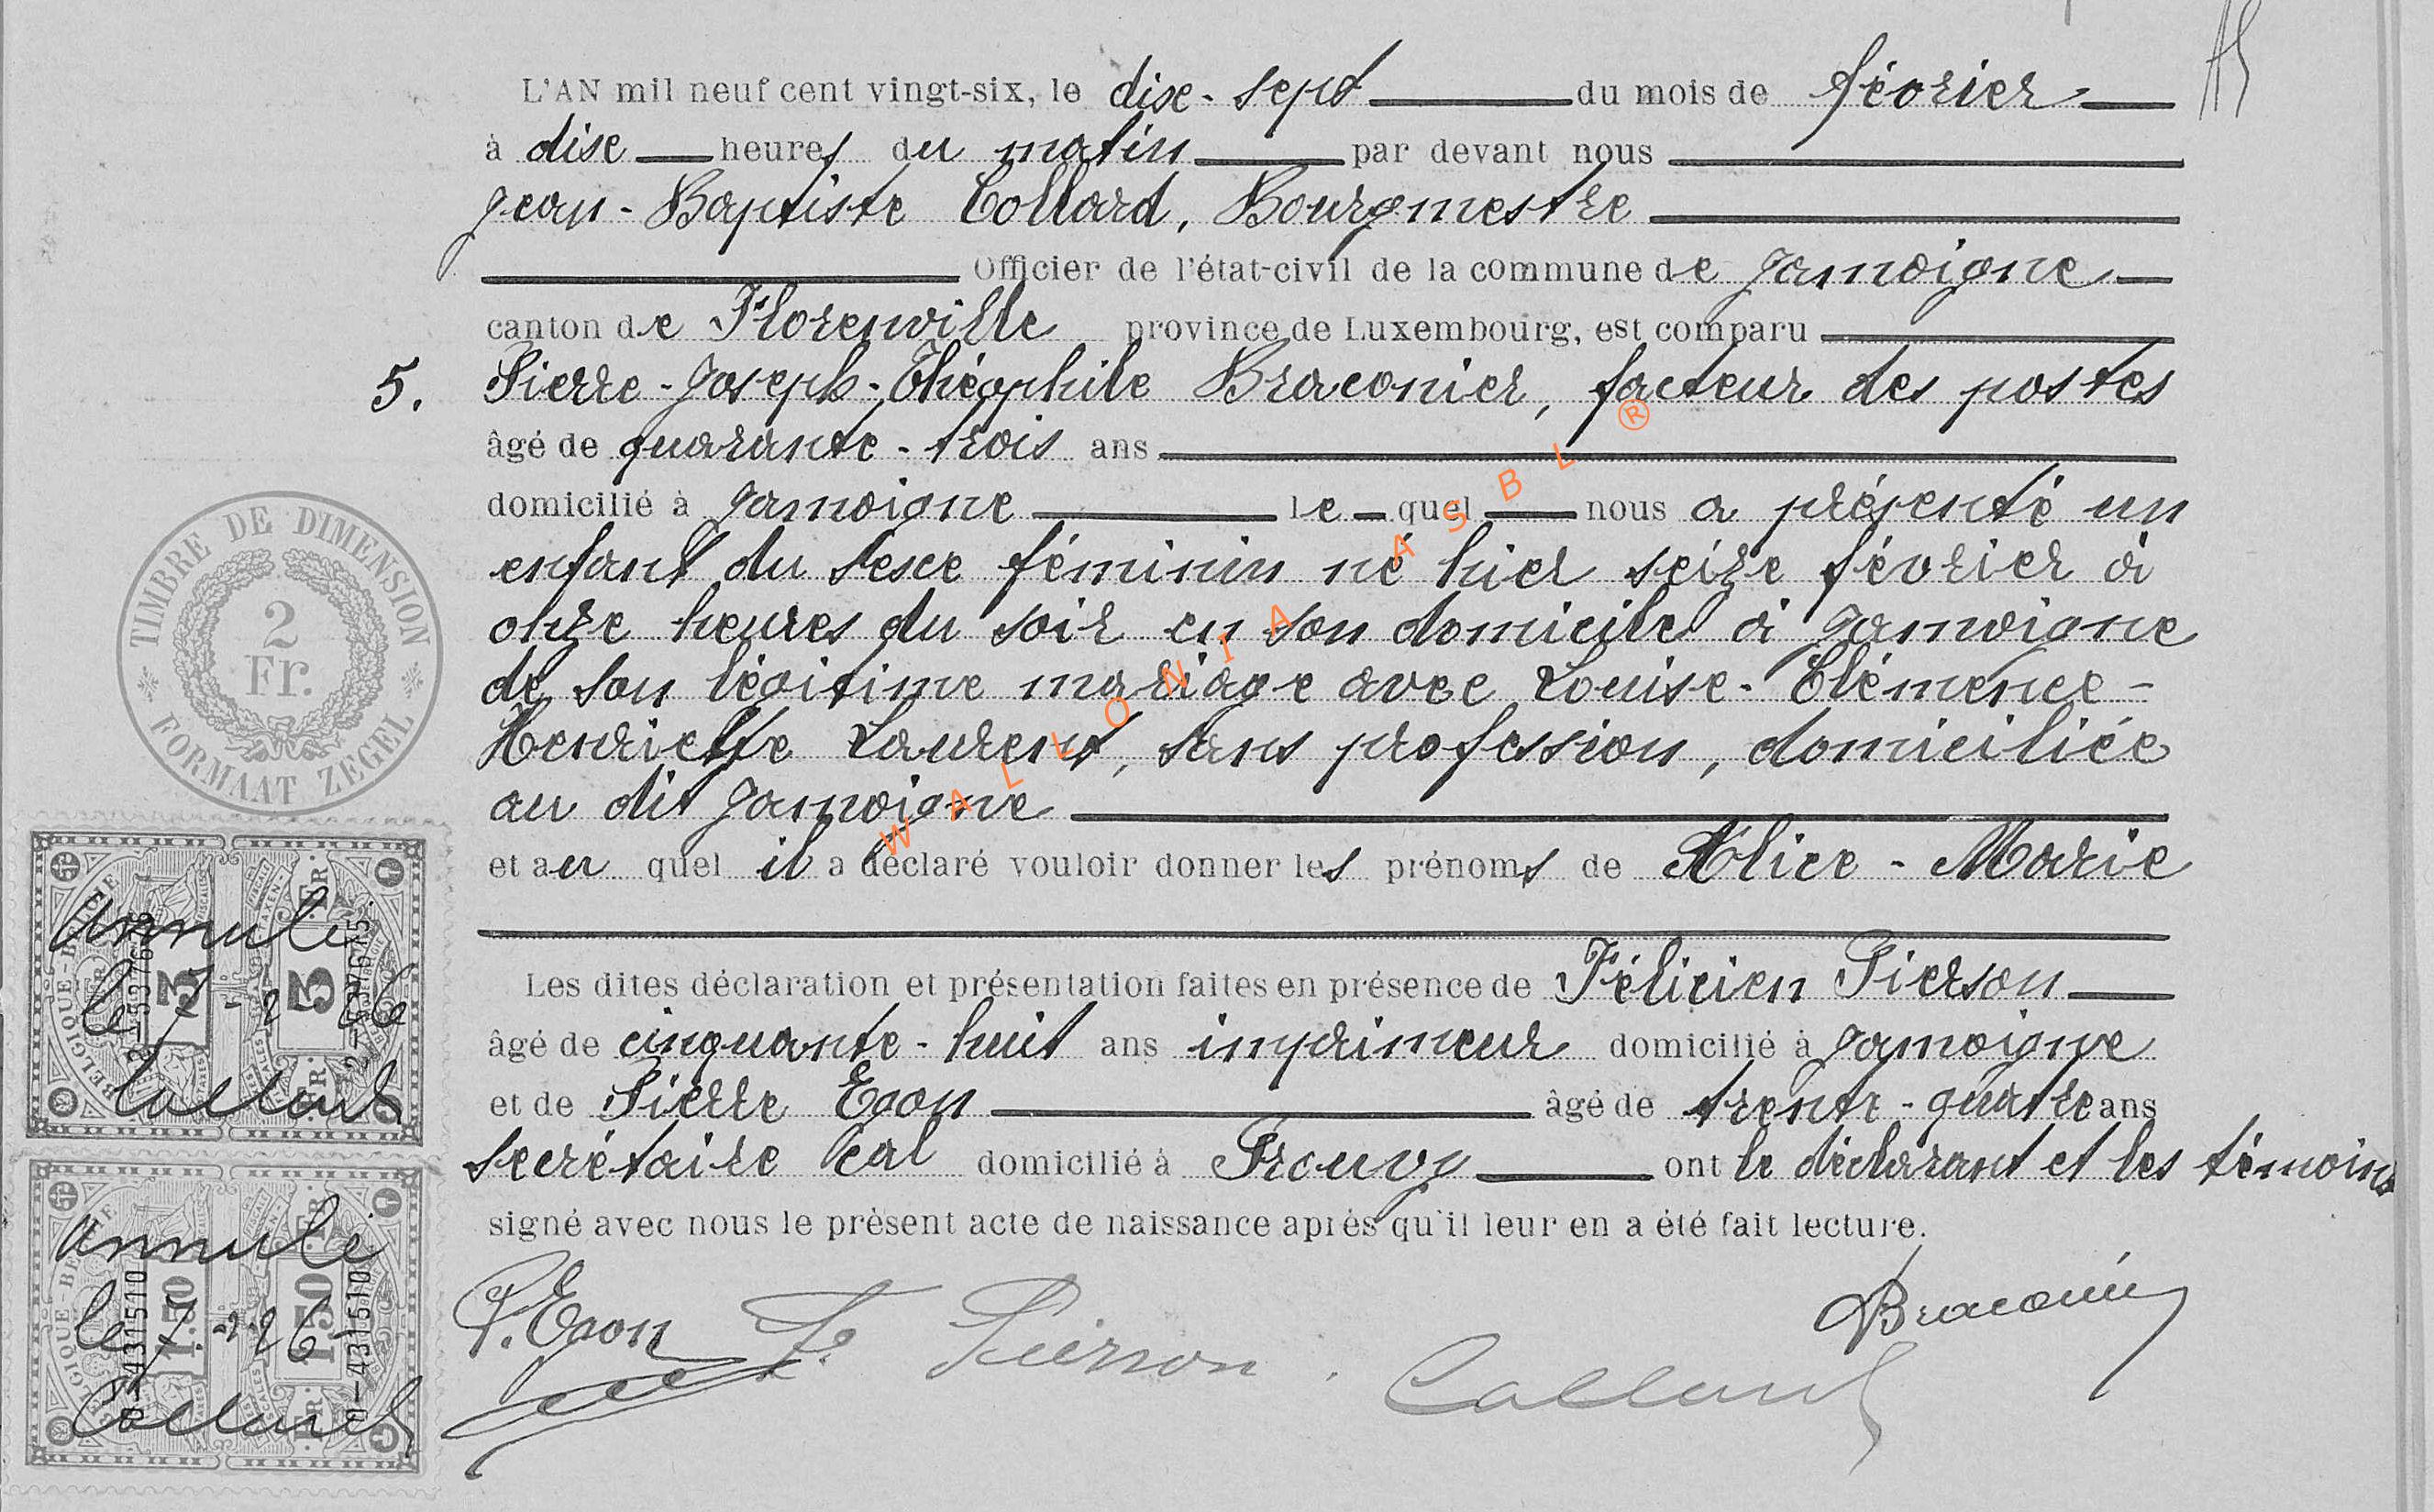 L'AN mil neuf cent vingt-six, le dix-sept du mois de février
à dix heures du matin par devant nous
Jean-Baptiste Collard, Bourgmestre
Officier de l'état-civil de la commune de Jamoigne
canton de Florenville province de Luxembourg, est comparu
5. Pierre-Joseph-Théophile Braconier, facteur des postes
âgé de quarante-trois ans
domicilié à Jamoigne le quel nous a présenté un
enfant du sexe féminin né hier seize février à
onze heures du soir en son domicile à Jamoigne
de son légitime mariage avec Louise-Clémence-
Henriette Laurent, sans profession, domiciliée
au dit Jamoigne
et au quel il a déclaré vouloir donner les prénoms de Alice-Marie
Les dites déclaration et présentation faites en présence de Félicien Pierson
âgé de cinquante-huit ans imprimeur domicilié à Jamoigne
et de Pierre Egon âgé de trente-quatre ans
secrétaire cal domicilié à Prouvy ont le déclarant et les témoins
signé avec nous le présent acte de naissance après qu'il leur en a été fait lecture.
P. Egon F. Pierson. Collard Braconier
TIMBRE DE DIMENSION
2
Fr.
FORMAAT ZEGEL
BELGIQUE-BELGIE
3 FR
Annulé
le 7-2 26
Collard
BELGIQUE-BELGIE
1.50 FR
0-431510
Annulé
le 7-2-26
Collard
WALLONIA ASBL ®